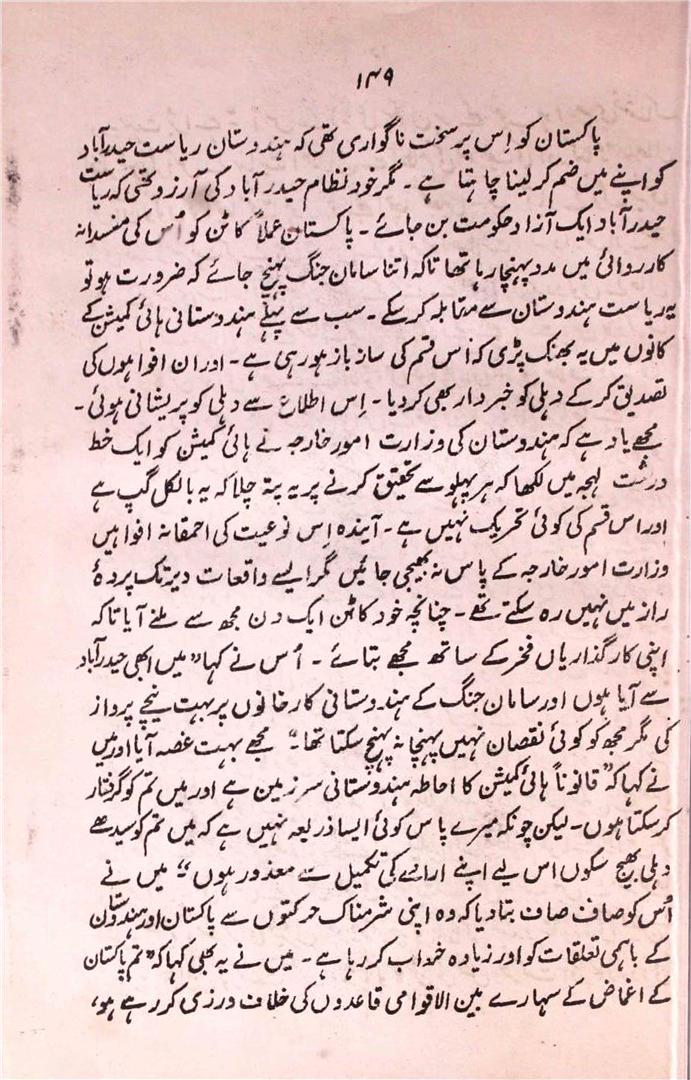 ۱۴۹
پاکستان کو اِس پر سخت ناگواری تھی کہ ہندوستان ریاست حیدرآباد
کو اپنے میں ضم کر لینا چاہتا ہے۔ مگر خود نظام حیدرآباد کی آرزو تھی کہ ریاست
حیدرآباد ایک آزاد حکومت بن جائے۔ پاکستان عملاً کاٹن کو اُس کی مفسدانہ
کارروائی میں مدد پہنچا رہا تھا تاکہ اتنا سامان جنگ پہنچ جائے کہ ضرورت ہو تو
یہ ریاست ہندوستان سے مقابلہ کر سکے۔ سب سے پہلے ہندوستانی ہائی کمیشن کے
کانوں میں یہ بھنک پڑی کہ اُس قسم کی ساز باز ہو رہی ہے۔ اور ان افواہوں کی
تصدیق کر کے دہلی کو خبردار بھی کر دیا۔ اِس اطلاع سے دہلی کو پریشانی ہوئی۔
مجھے یاد ہے کہ ہندوستان کی وزارت امور خارجہ نے ہائی کمیشن کو ایک خط
درشت لہجہ میں لکھا کہ ہر پہلو سے تحقیق کرنے پر یہ پتہ چلا کہ یہ بالکل گپ ہے
اور اس قسم کی کوئی تحریک نہیں ہے۔ آیندہ اِس نوعیت کی احمقانہ افواہیں
وزارت امور خارجہ کے پاس نہ بھیجی جائیں مگر ایسے واقعات دیر تک پردۂ
راز میں نہیں رہ سکتے تھے۔ چنانچہ خود کاٹن ایک دن مجھ سے ملنے آیا تاکہ
اپنی کارگذاریاں فخر کے ساتھ مجھے بتائے۔ اُس نے کہا ”میں ابھی حیدرآباد
سے آیا ہوں اور سامان جنگ کے ہندوستانی کارخانوں پر بہت نیچے پرواز
کی مگر مجھ کو کوئی نقصان نہیں پہنچا نہ پہنچ سکتا تھا۔“ مجھے بہت غصہ آیا اور میں
نے کہا کہ ”قانوناً ہائی کمیشن کا احاطہ ہندوستانی سرزمین ہے اور میں تم کو گرفتار
کر سکتا ہوں۔ لیکن چونکہ میرے پاس کوئی ایسا ذریعہ نہیں ہے کہ میں تم کو سیدھے
دہلی بھیج سکوں اس لیے اپنے ارادے کی تکمیل سے معذور ہوں“ میں نے
اُس کو صاف صاف بتا دیا کہ وہ اپنی شرمناک حرکتوں سے پاکستان اور ہندوستان
کے باہمی تعلقات کو اور زیادہ خراب کر رہا ہے۔ میں نے یہ بھی کہا کہ ”تم پاکستان
کے اغماض کے سہارے بین الاقوامی قاعدوں کی خلاف ورزی کر رہے ہو،